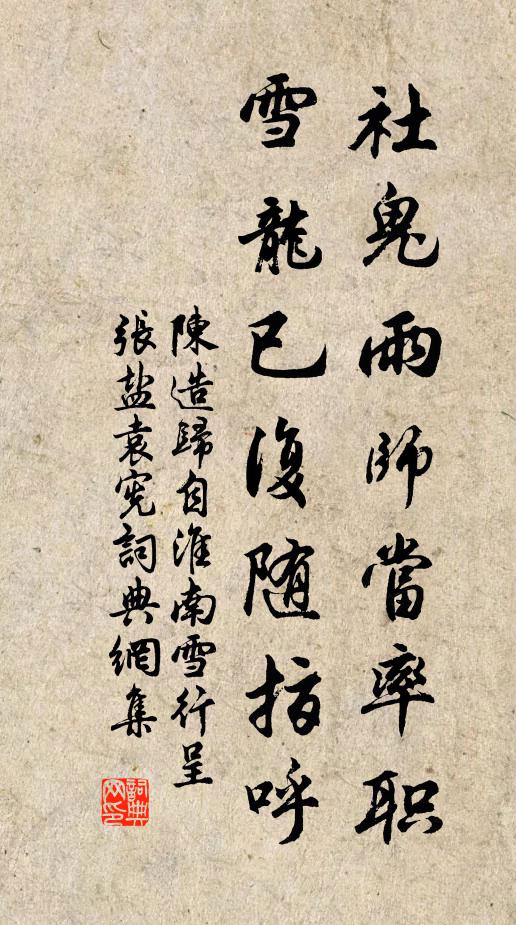 社鬼雨師當率职
雪龍已復随指呼
陳造歸自淮南雪行呈
張盐袁宪詞典網集
詞典网印